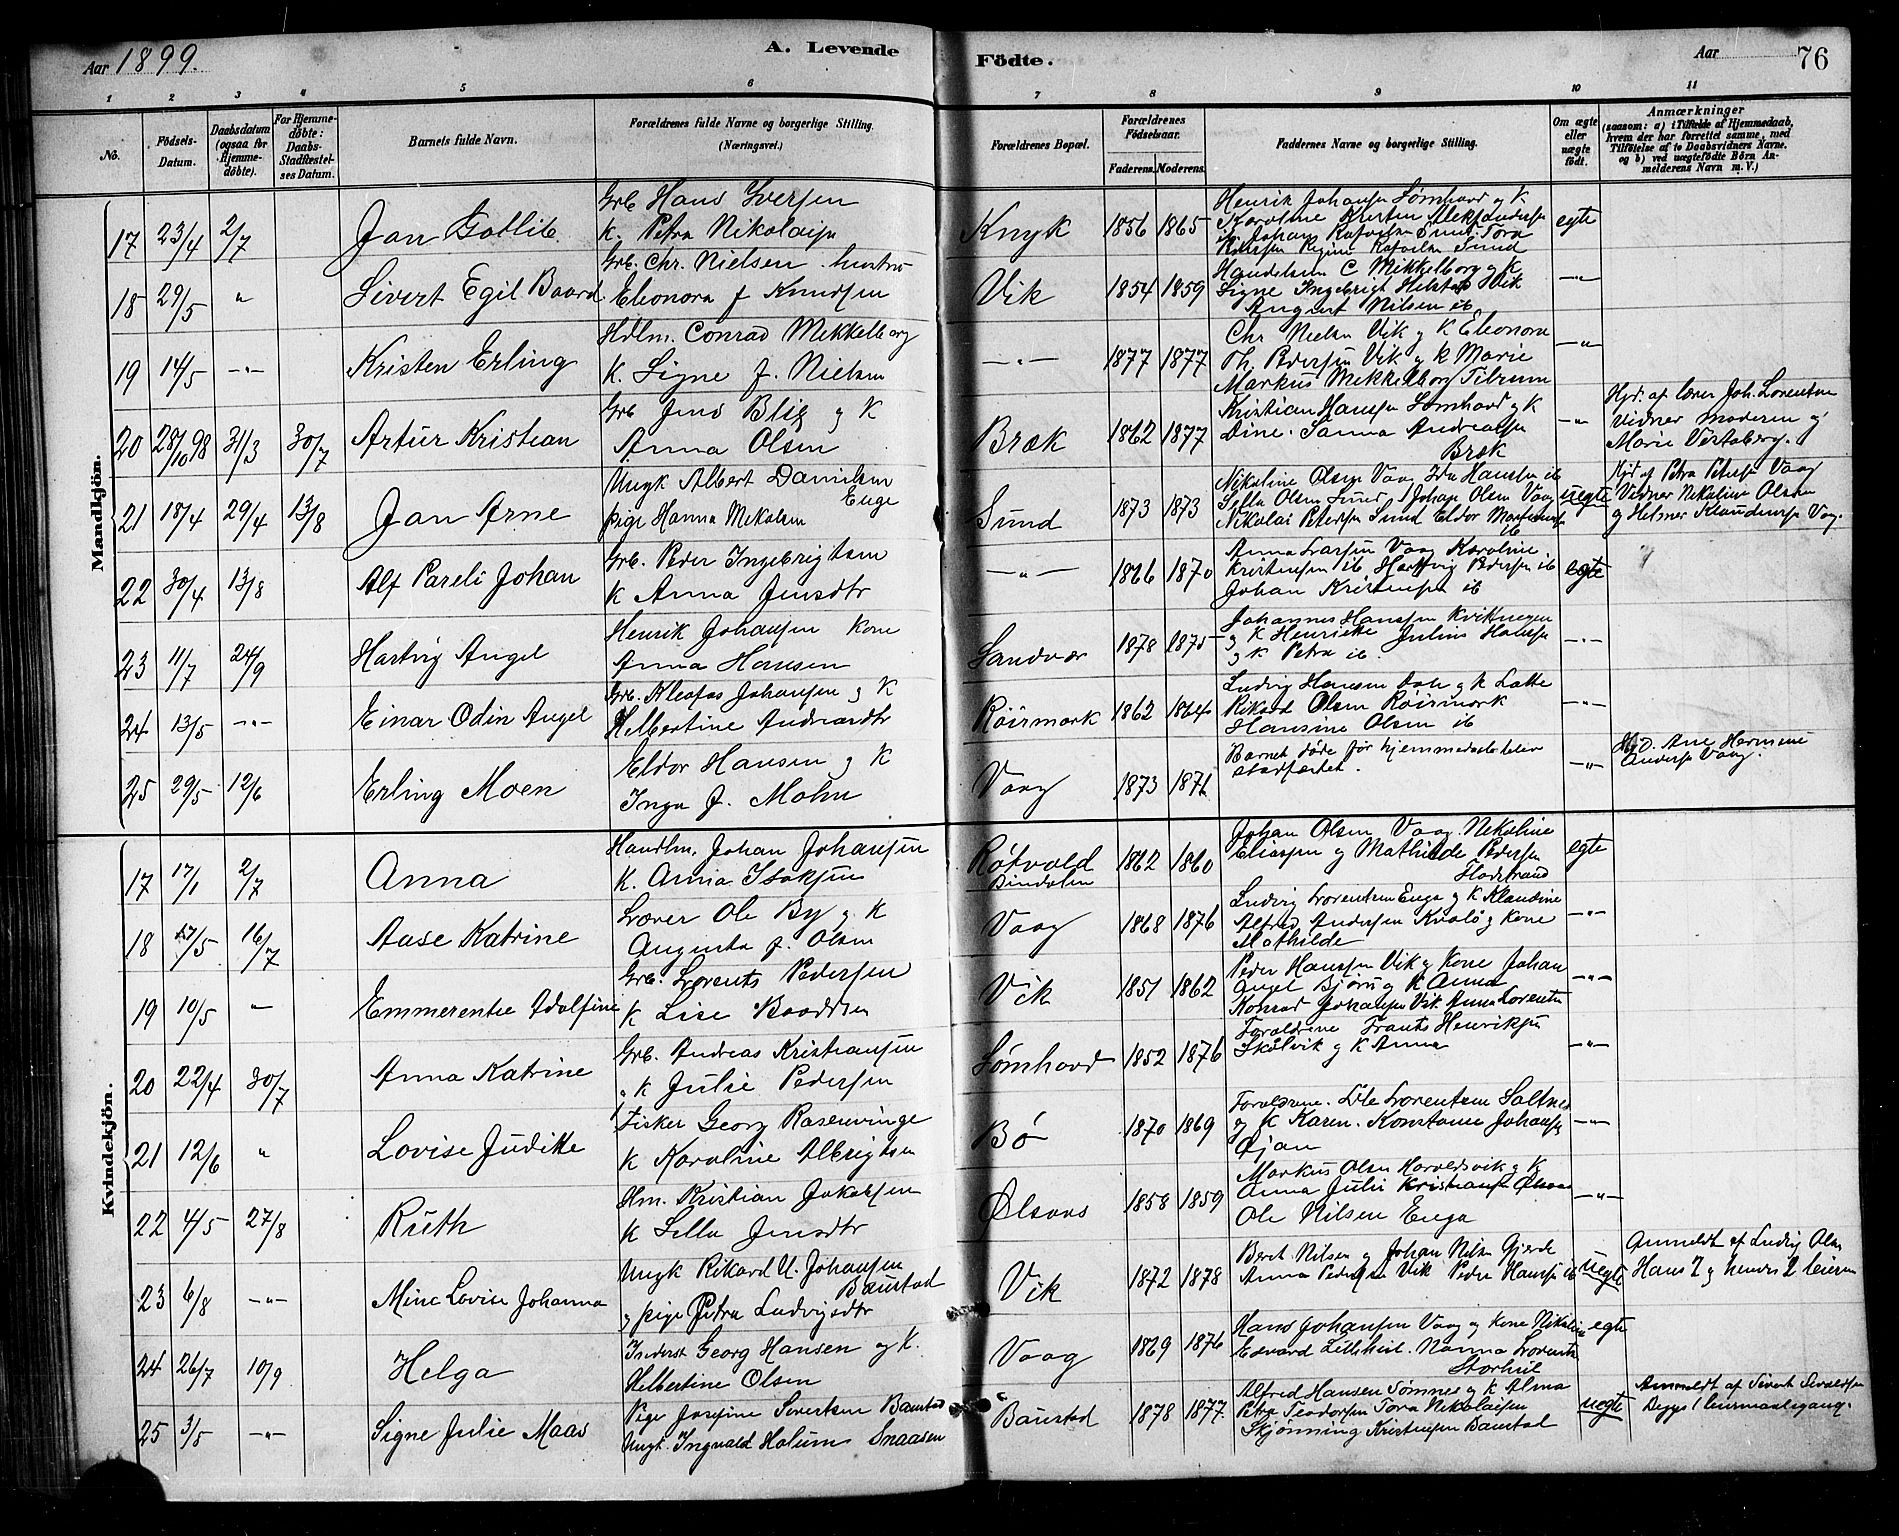 Aar 1899.
A. Levende
Födte.
Aar
76
1 2 3 4 5 6 7 8 9 10 11
No.
Födsels-Datum.
Daabsdatum (ogsaa for Hjemme-döbte).
For Hjemme-döbte: Daabs-Stadfæstel-ses Datum.
Barnets fulde Navn.
Forældrenes fulde Navne og borgerlige Stilling. (Næringsvei.)
Forældrenes Bopæl.
Forældrenes Födselsaar.
Faderens. Moderens.
Faddernes Navne og borgerlige Stilling.
Om ægte eller uægte födt.
Anmærkninger (saasom: a) i Tilfælde af Hjemmedaab, hvem der har forrettet samme, med Tilföielse af to Daabsvidners Navne. og b) ved uægtefödte Börn An-melderens Navn m. V.)
Mandkjön.
17 23/4 2/7 Jan Gotlib Grb Hans Iversen
K. Petra Nikolaisn
Knyk 1856 1865
Henrik Johansen Sømhovd og K
Karoline Kristen Aleksandersen
Johan Rafaelsen Sund Tora
Regine Rafaelsen Sund
egte
18 29/5 " Sivert Egil Baard Grb. Chr. Nielsen hustru
Eleonora f Knudsen
Vik 1854 1859
Handelsm C Mikkelborg og K
Signe Ingebrigt Vik
August Nilsen ib
—"—
19 14/5 —"— Kristen Erling Hdlm. Conrad Mikkelborg
K. Signe f. Nielsen
—"— 1877 1877
Chr Nielsn Vik og K Eleonora
Th. Pedersen Vik og K Marie
Markus Mikkelborg Tilrum
—"—
20 28/10 98 31/3 30/7 Artur Kristian Grb Jens Blix og K
Anna Olsen
Bræk 1862 1877
Kristian Hansen Sømhovd og K
Dine. Sanna Andreasen
Bræk
—"—
Hjd. af lærer Joh. Lorentsen
Vidner Moderen og
Marie
21 18/4 29/4 13/8 Jan Arne Ungk Albert Danielsen
Enge
pige Hanna Nikolsen
Sund 1873 1873
Nikoline Olsen Vaag Ida Hansen ib
Sella Olsen Sund Johan Olsen Vaag
Nikolai Petersen Sund Eldor
uegte
Hjd af Petra Petersen Vaag
Vidner Nikoline Olsen
og Helmer Klaudiusen Vaag.
22 30/4 13/8 Alf Pareli Johan Grb. Peder Ingebrigtsen
K Anna Jensdtr
—"— 1866 1870
Anna Larsen Vaag Karoline
Kristensen ib Hartvig Pedersen ib
Johan Kristensen ib
egte
23 11/7 24/9 Hartvig Angel Henrik Johansen Kone
Anna Hansen
Sandvær 1878 1875
Johannes Hanssen
og K Henrikke Julius
og K Petra ib.
—"—
24 13/5 —"— Einar Odin Angel Grb. Kleofas Johansen og K
Helbertine Andreasdtr
Røirmark 1862 1864
Ludvig Hansen og K Lotte
Rikard Olsen Røirmark
Hansine Olsen ib
—"—
25 29/5 12/6 Erling Moen Eldor Hansen og K
Inga f. Mohn
Vaag 1873 1871
Barnet døde før hjemmedaaben blev
stadfæstet.
—"—
Hjd. Ane Hermine
Anders Vaag.
Kvindekjön.
17 17/1 2/7 Anna Handlm. Johan Johansen
K. Anna Isaksen
Røtvold
Bindalen
1862 1860
Johan Olsen Vaag. Nikoline
Eliassen og Mathilde Pedersen
egte
18 17/5 16/7 Aase Katrine Lærer Ole By og K
Augusta f. Olsen
Vaag 1868 1876
Ludvig Lorentsen Enga og K Klaudine
Alfred Andersen Kvalø og Kone
Mathilde
—"—
19 10/5 " Emmerentse Adolfine Grb. Lorents Pedersen
K Lise Baardsen
Vik 1851 1862
Peder Hanssen Vik og Kone Johan
Angel Bjørn og K Anna
Konrad Johansen Vik Anna Lorentsen
—"—
20 22/4 30/7 Anna Katrine Grb. Andreas Kristiansen
K Julie Pedersen
Sømhovd 1852 1876
Forældrene Frants Henriksen
Skålvik og K Anna
—"—
21 12/6 " Lovise Juditte Fisker Georg Rasenvinge
K Karoline Albrigtsen
Bø 1870 1869
Forældrene. Ole Lorentsen Saltnes
og K Karen. Konstanse Johansen
Øjan
—"—
22 4/5 27/8 Ruth Hm. Kristian Jakobsen
K Sella Jensdtr
Ølsvas 1858 1859
Markus Olsen Haroldsvik og K
Anna Julie Kristiansen
Ole Nilsen Enga
—"—
23 6/8 —"— Mine Lovise Johanna Ungk Rikard U. Johansen
Baustad
og pige Petra Ludvigsdtr
Vik 1872 1878
Beret Nilsen og Johan Nilsen Gjerde
Anna Pedersen Vik Peder Hansen ib
uegte
Anmeldt af Ludvig Olsen
Hans 2 og hendes 2 leierm
24 26/7 10/9 Helga Inderst Georg Hansen og K.
Helbertine Olsen
Vaag 1869 1876
Hans Johansen Vaag og Kone Nikoline
Edvard Lilleheil. Nanna Lorents
Storheil
egte
25 3/5 —"— Signe Julie Maas Pige Josefine Sivertsen Baustad
Ungk. Ingvald Holum Snaasen
Baustad 1878 1877.
Alfred Hansen Sømnes og K Alma
Petra Teodorsen Tora Nikolaisen
Skjønning Kristensen Baustad
uegte
Anmeldt af Sivert
Begges 1 leiermaalsgang.